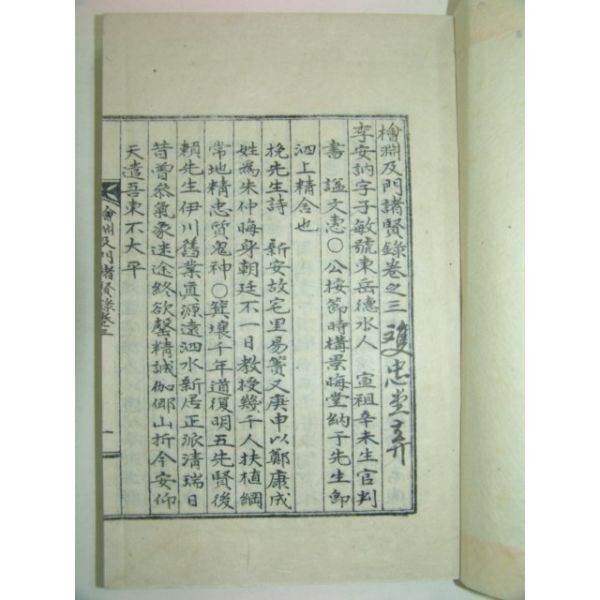 檜淵及門諸賢錄卷之三 雙忠堂弆
李安訥字子敏號東岳德水人 宣祖辛未生官判
書 謚文惠○公按節時構景晦堂納于先生卽
泗上精舍也
挽先生詩 新安故宅里易簀又庚申以鄭康成
姓爲朱仲晦身朝廷不一日教授幾千人扶植綱
常地精忠質鬼神○箕壤千年道復明五先賢後
賴先生伊川舊業眞源遠泗水新居正派淸瑞日
昔曾叅氣象迷途終欲罄精誠伽倻山折今安仰
天遣吾東不大平
檜淵及門諸賢錄卷三
一